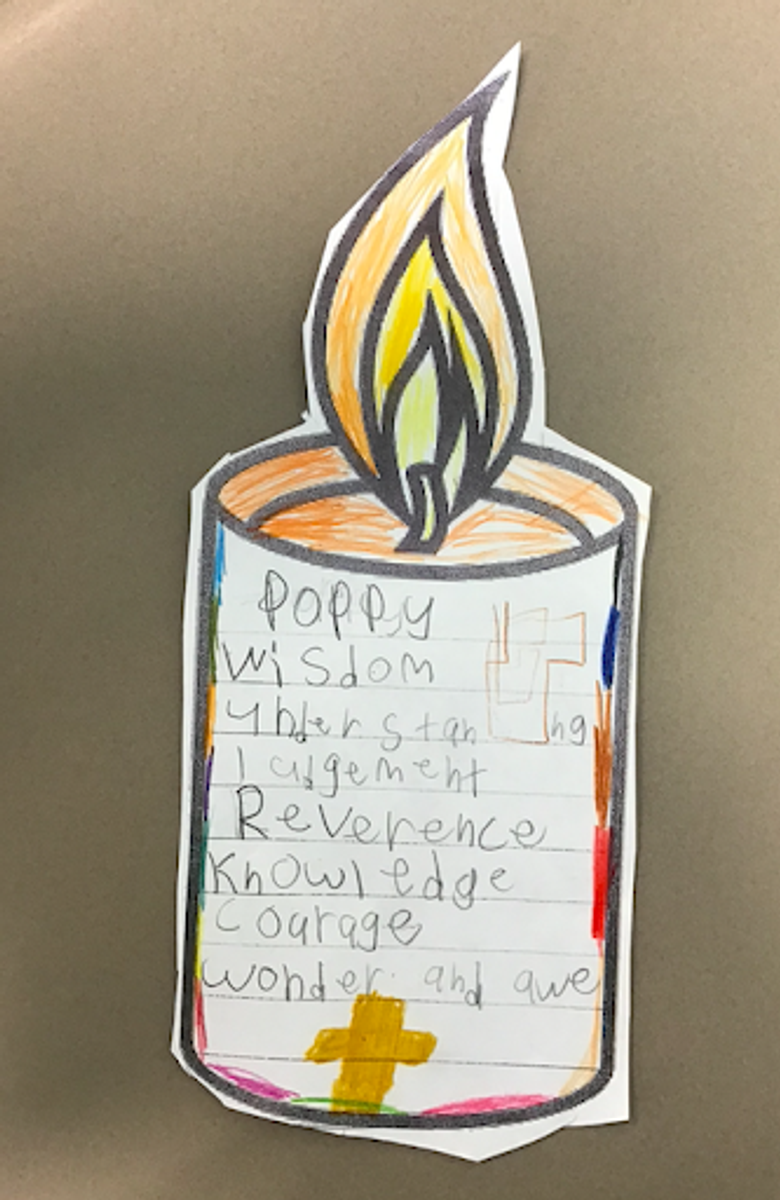 Poppy
Wisdom
understan ng
Judgement
Reverence
Knowledge
Courage
wonder and awe